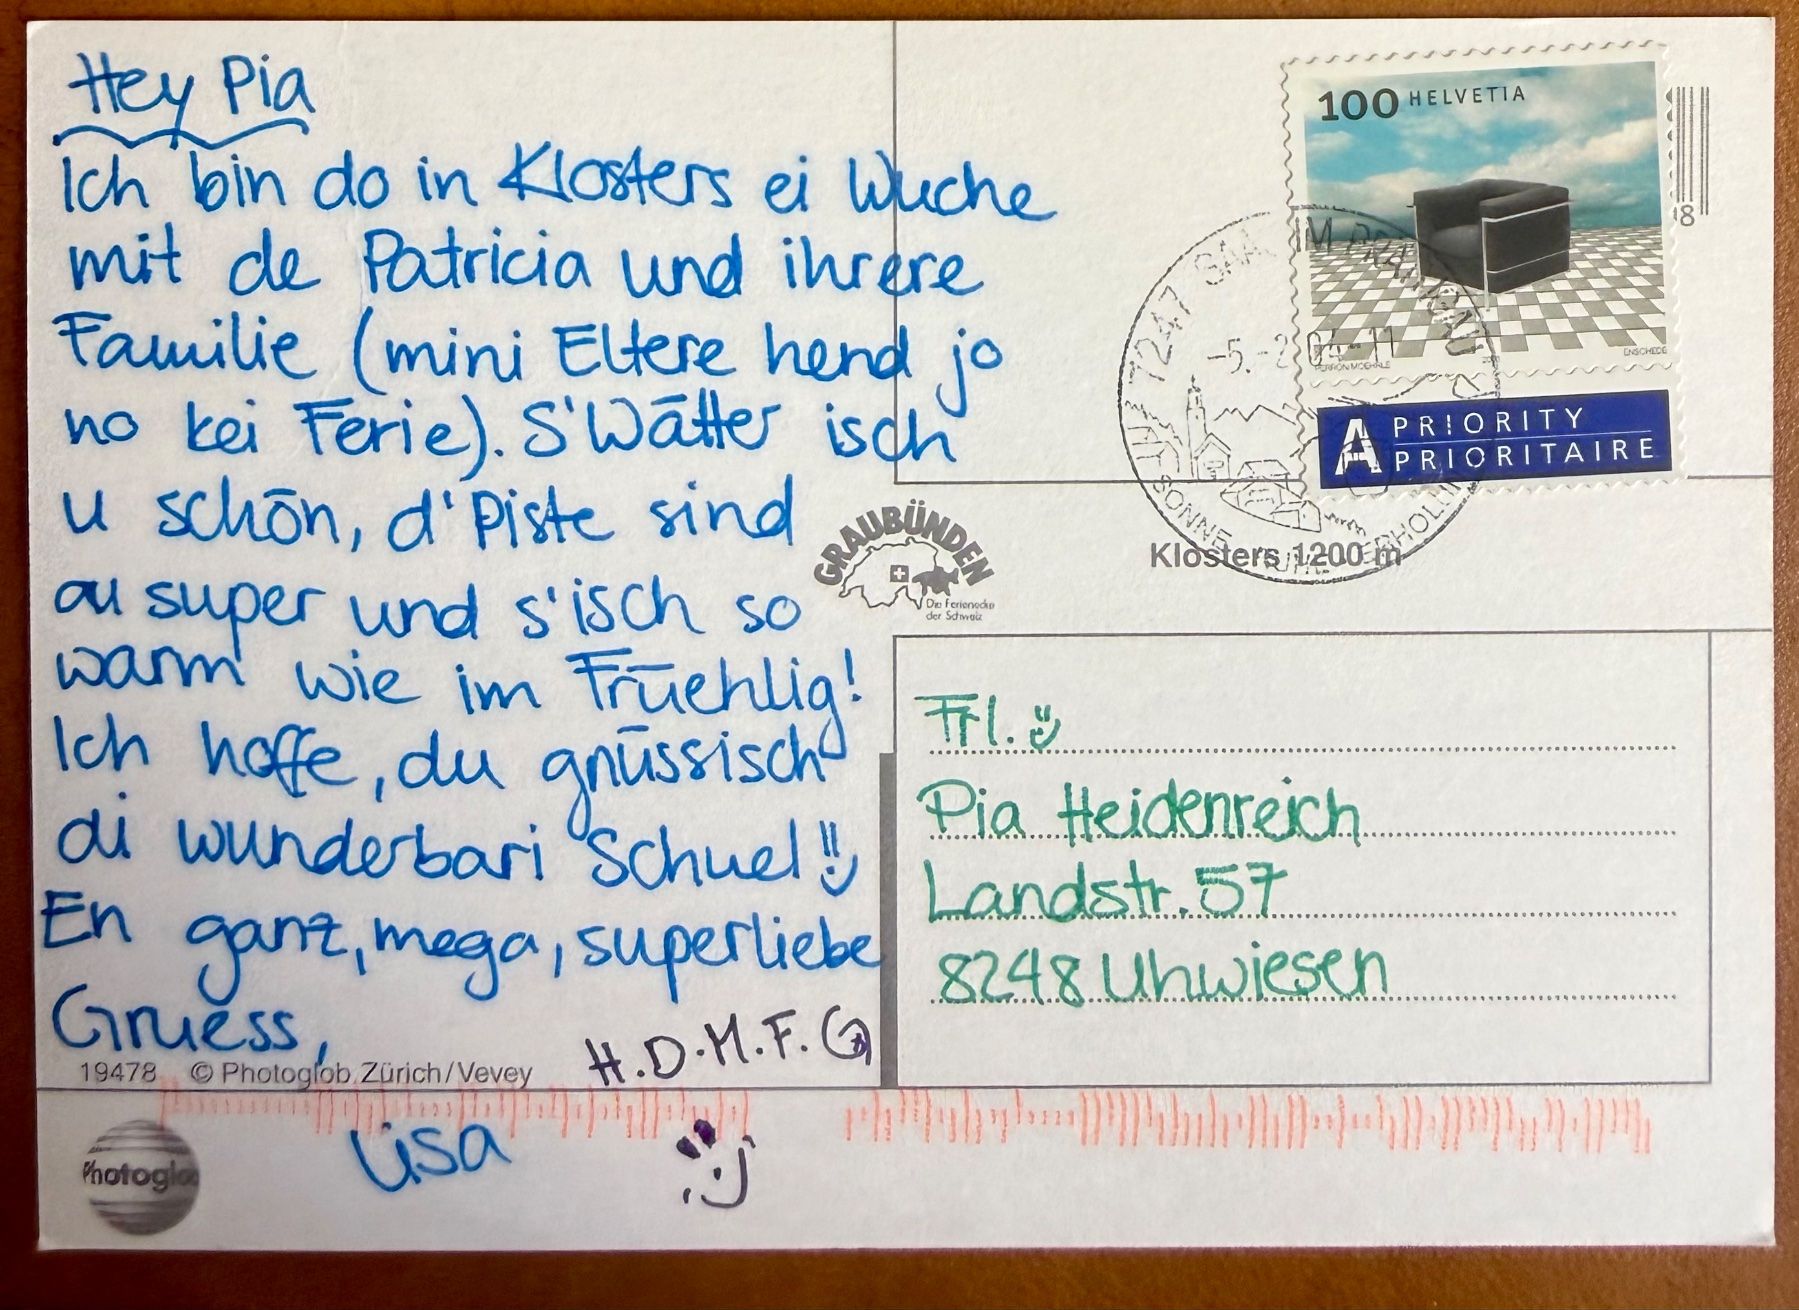 Hey Pia
Ich bin do in Klosters ei Wuche
mit de Patricia und ihrere
Familie (mini Eltere hend jo
no kei Ferie). S'Wätter isch
u schön, d'Piste sind
au super und s'isch so
warm wie im Früehlig!
Ich hoffe, du gnüssisch
di wunderbari Schuel
En ganz, mega, superliebe
Gruess,
H.D.M.F.G
Lisa
19478 © Photoglob, Zürich/Vevey
Photoglob
100 HELVETIA
ENSCHEDE
A PRIORITY
PRIORITAIRE
8
7247 SAAS IM PRÄTTIGAU
-5.-2.04-11
SONNE
GRAUBÜNDEN
Die Ferienecke
der Schweiz
Klosters 1200 m
Frl.
Pia Heidenreich
Landstr. 57
8248 Uhwiesen